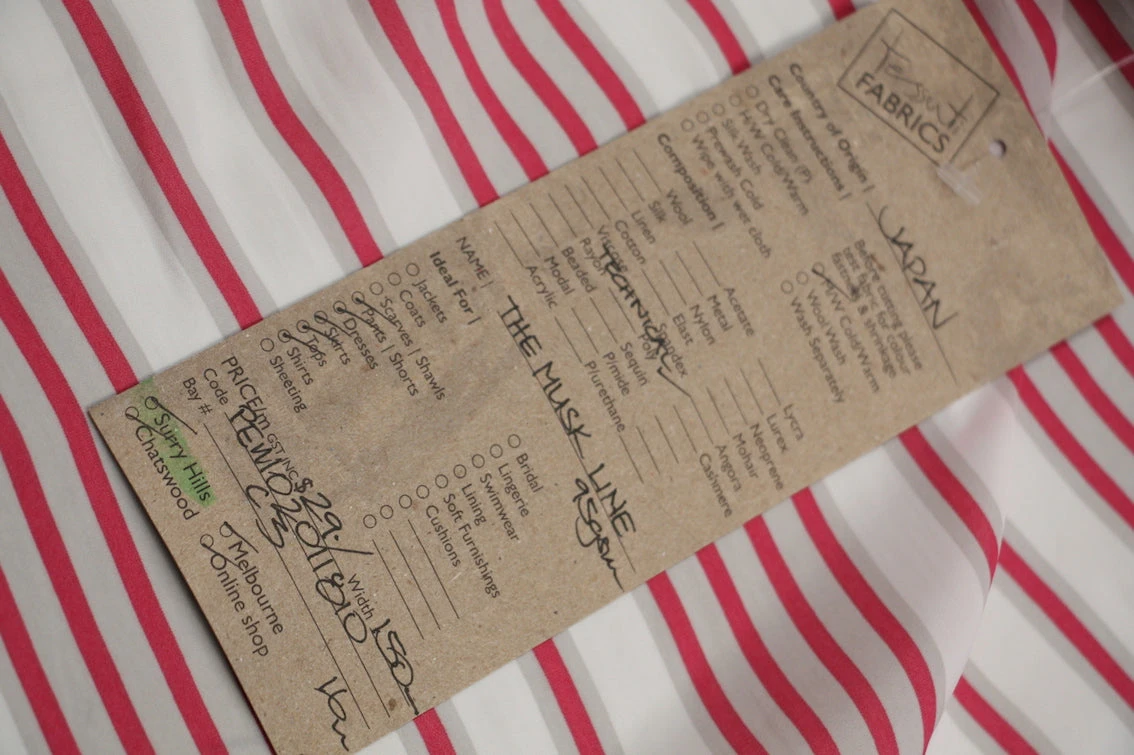 Tessuti
FABRICS
Country of Origin | JAPAN
Care Instructions |
Before cutting please
test fabric for colour
fastness & shrinkage
Dry Clean (P)
H/W Cold/Warm
Silk Wash
Prewash Cold
Wipe with wet cloth
H/W Cold/Warm
Wool Wash
Wash Separately
Composition |
Wool
Silk
Linen
Cotton
Viscose
Rayon
Beaded
Modal
Acrylic
Acetate
Metal
Nylon
Poly
Sequin
P/mide
P/urethane
Lycra
Lurex
Neoprene
Mohair
Angora
Cashmere
NAME | THE MUSK LINE
95gsm
Ideal For |
Jackets
Coats
Scarves | Shawls
Pants | Shorts
Dresses
Skirts
Tops
Shirts
Sheeting
Bridal
Lingerie
Swimwear
Lining
Soft Furnishings
Cushions
PRICE/m GST INC $29./ Width
Code
Bay # C3
Surry Hills
Chatswood
Melbourne
Online shop